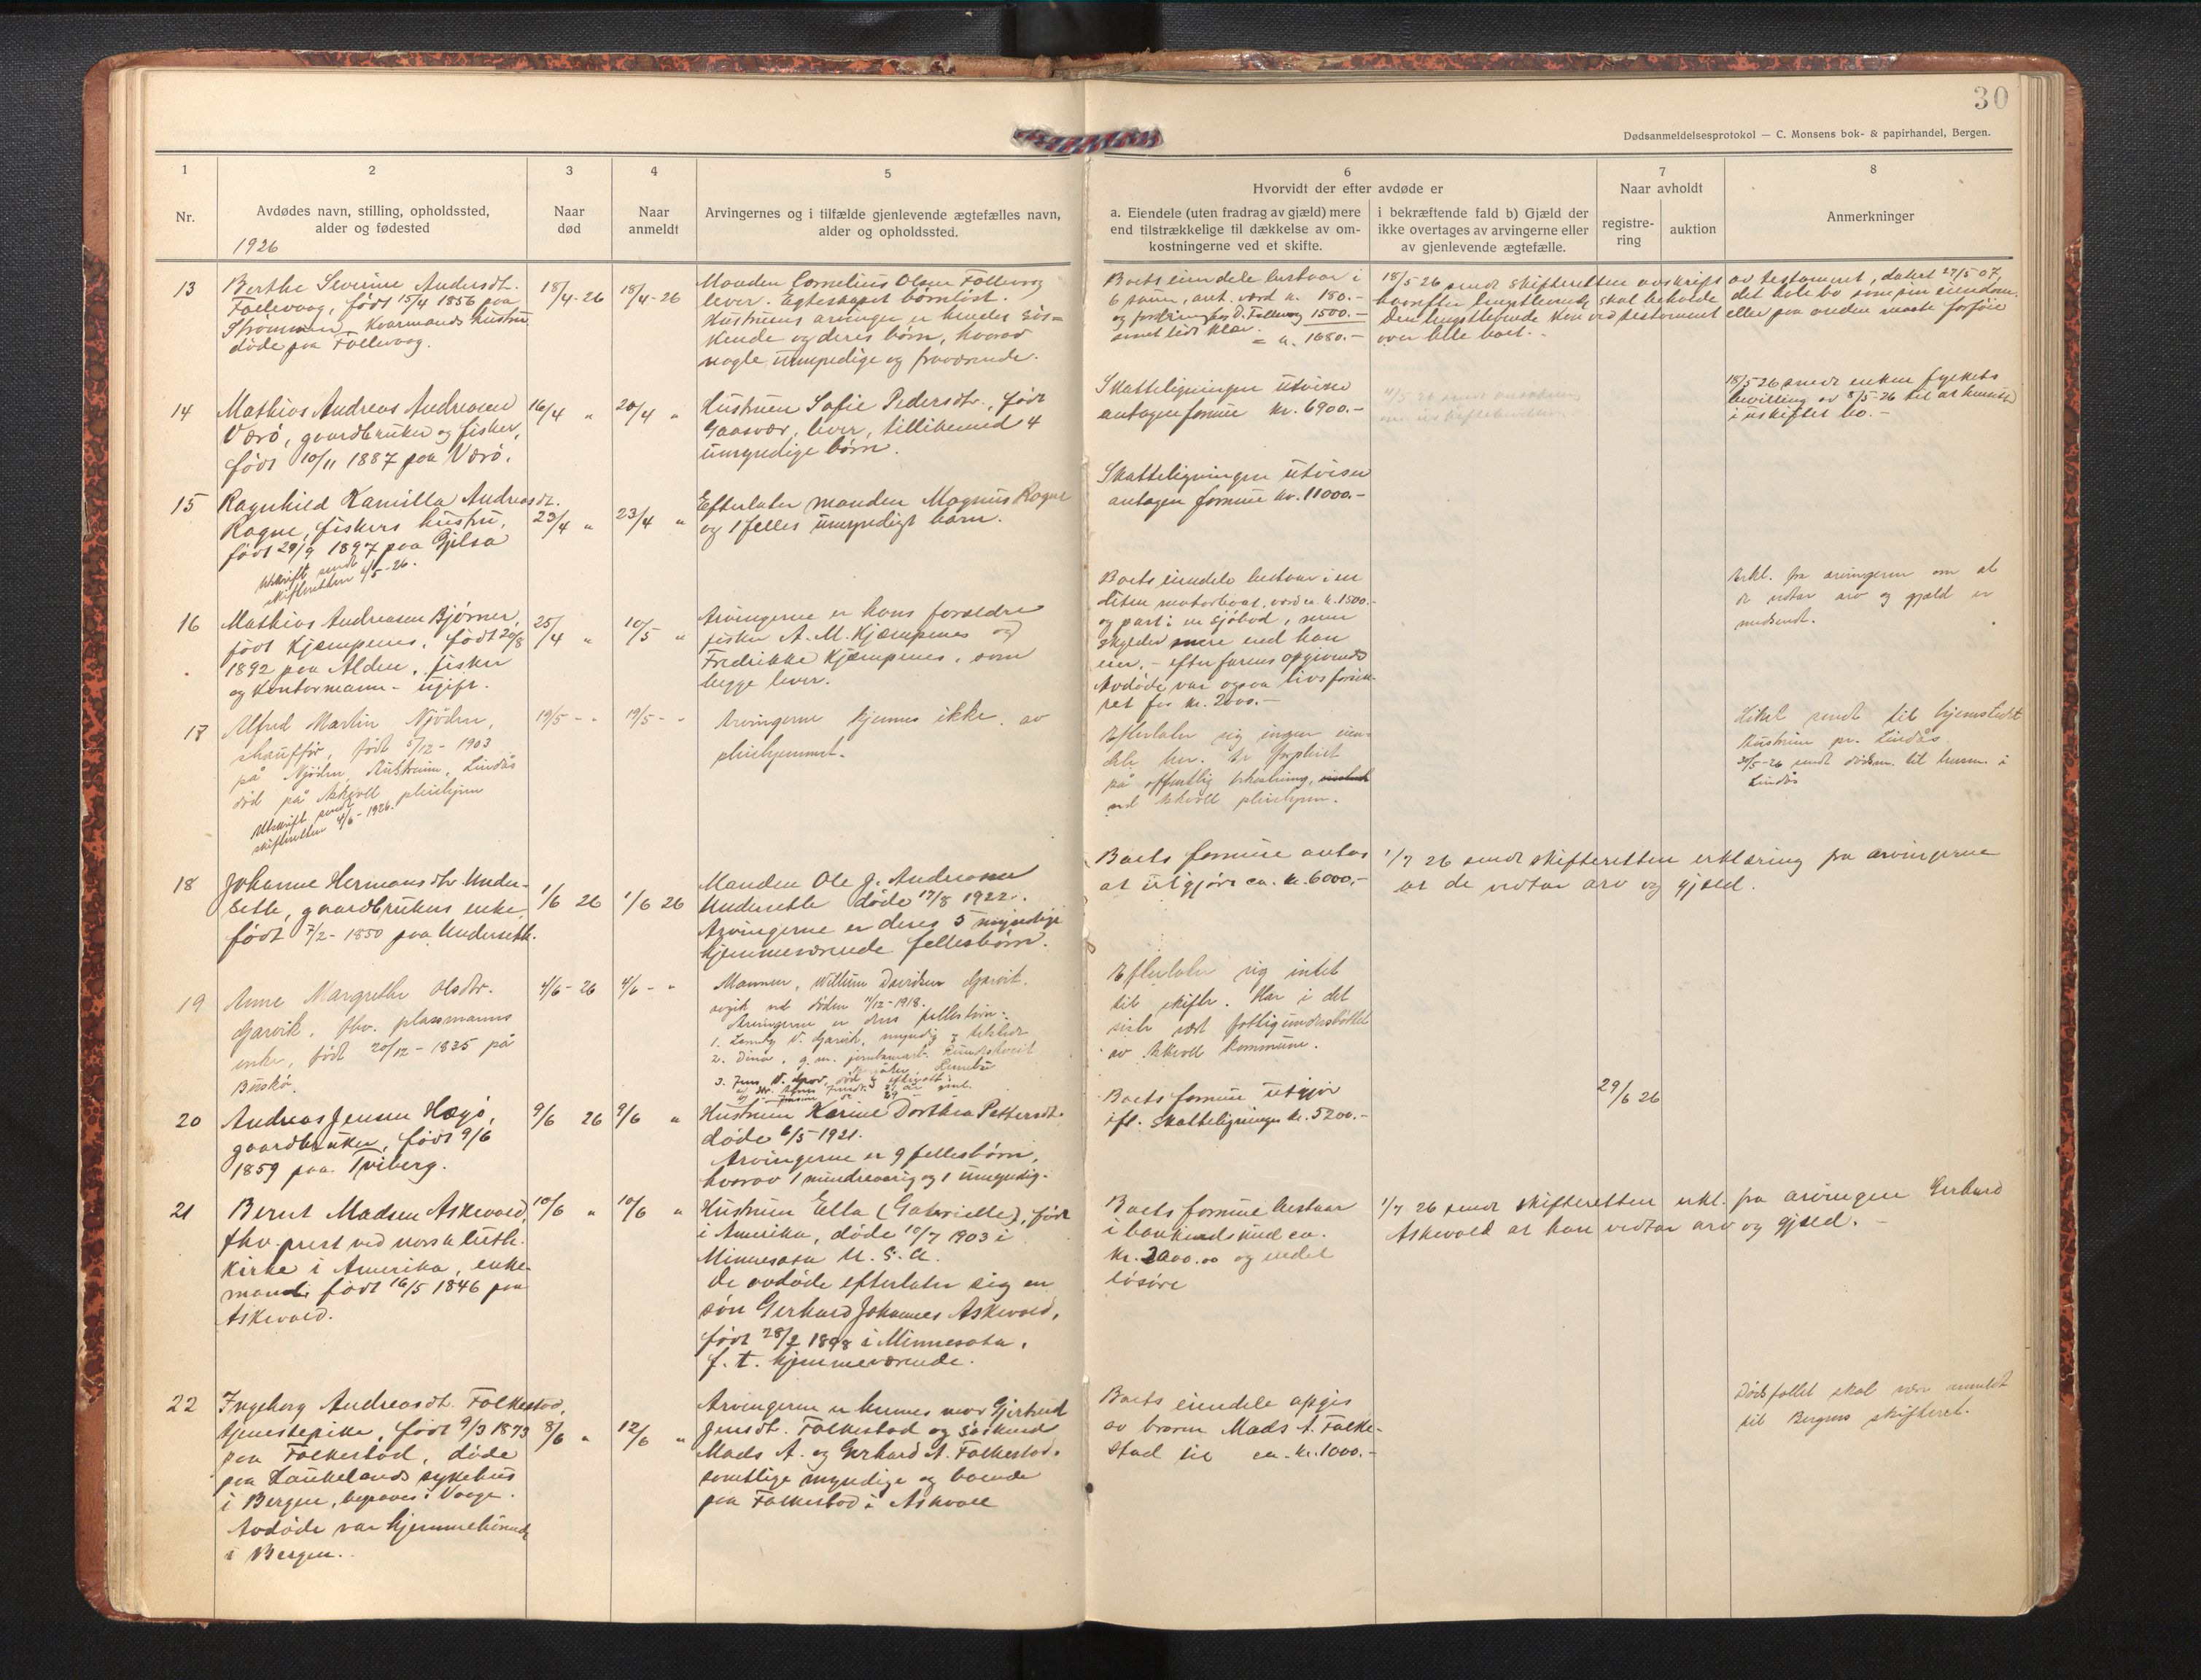 30
Dødsanmeldelsesprotokol — C. Monsens bok- & papirhandel, Bergen.
1 2 3 4 5 6 7 8
Nr.
Avdødes navn, stilling, opholdssted,
alder og fødested
1926
Naar
død
Naar
anmeldt
Arvingernes og i tilfælde gjenlevende ægtefælles navn,
alder og opholdssted.
Hvorvidt der efter avdøde er
a. Eiendele (uten fradrag av gjæld) mere
end tilstrækkelige til dækkelse av om-
kostningerne ved et skifte.
i bekræftende fald b) Gjæld der
ikke overtages av arvingerne eller
av gjenlevende ægtefælle.
Naar avholdt
registre-
ring
auktion
Anmerkninger
13
Berthe Severine Andersdt.
Follevaag, født 15/4 1856 paa
Strømmen, Kaarmands hustru
døde paa Follevaag.
18/4-26
18/4-26
Manden Cornelius Olsen Follevaag
lever. Egteskapet børnløst.
Hustruens arvinger er hendes søs-
kende og deres børn, hvorav
nogle umyndige og fraværende.
Boets eiendele bestaar i
180.-
1500.-
= kr. 1680.-
18/5-26 sendt skifteretten avskrift av testament, datert 27/5 07,
hvorefter længstlevende skal beholde det hele bo som sin eiendom.
Den længstlevende kan ved testament eller paa anden maate forføie
over hele boet.-
14
Mathias Andreas Andreasen
Værø, gaardbruker og fisker,
født 10/11 1887 paa Værø.
16/4 "
20/4 "
Hustruen Sofie Pedersdtr., født
Gaasvær, lever, tillikemed 4
umyndige børn.
Skatteligningen utviser
antagen formue kr. 6900.-
18/5 26 sendt enken fylkets
bevilling av 8/5-26 til at hensitte
i uskiftet bo.-
15
Ragnhild Kamilla Andreasdt.
Rogne, fiskers hustru,
født 29/9 1897 paa Gjelsa
Utskrift sendt
skifteretten 4/5-26.
23/4 "
23/4 "
Efterlater manden Magnus Rogne
og 1 felles umyndigt barn.
Skatteligningen utviser
antagen formue kr. 11000.-
16
Mathias Andreasen Bjørnen,
født Kjempenes, født 20/8
1892 paa Alden, fisker
og kontormann - ugift.
25/4 "
10/5 "
Arvingerne er hans forældre
fisker A. M. Kjæmpenes og
Fredrikke Kjæmpenes, som
begge lever.
Boets eiendele bestaar i en
liten motorbaat, værd ca. kr. 1500.-
og part i en sjøbod, men
skylder mere end han
eier, - efter farens opgivende
Avdøde var ogsaa livsforsik-
ret for kr. 2000.-
Erkl. fra arvingerne om at
de vedtar arv og gjæld er
nedsendt.
17
Alfred Martin Njøden,
chauffør, født 5/12 - 1903
på Njøden, Austrheim, Lindås
død på Askvoll pleiehjem
Utskrift sendt
skifteretten 4/6 - 1926.
19/5 - "
19/5 - "
Arvingerne kjennes ikke av
pleiehjemmet.
Efterlater sig ingen eien-
dele her. Er forpleiet
på offentlig bekostning,
ved Askvoll pleiehjem.
sendt til hjemstedet
Austrheim pr. Lindås
til lensm. i
Lindås
18
Johanne Hermansdtr. Under-
sette, gaardbrukers enke
født 7/2 - 1850 paa Undersette.
1/6 26
1/6 26
Manden Ole J. Andreassen
Undersette døde 17/8 1922.
Arvingerne er deres 5 myndige
hjemmeværende fellesbørn.
Boets formue antas
at utgjøre ca. kr. 6000.-
1/7 26 sendt skifteretten erklæring fra arvingerne
at de vedtar arv og gjæld.
19
Anne Margrethe Olsdtr.
Gjarvik, fhv. plassmanns
enke, født 20/12 - 1835 på
Buskø.
4/6 - 26
4/6 - "
Mannen, Willum Davidsen Gjarvik.
avgik ved døden 11/12-1918.
Arvingerne er dens fellesbörn:
Efterlater sig intet
til skifte. Har i det
siste vært fattigunderstöttet
av Askvoll kommune.
20
Andreas Jensen Hægø,
gaardbruker, født 9/6
1859 paa Tviberg.
9/6 26
9/6 "
Hustruen Karine Dorthea Pettersdt.
døde 6/5 1921.
Arvingerne er 9 fellesbørn,
hvorav 1 mindreaarig og 1 umyndig.
Boets formue utgjør
ifl. skatteligningen kr. 5200.-
29/6 26
21
Bernt Madsen Askevold,
fhv. prest ved norsk luth.
kirke i Amerika, enke-
mand, født 16/5 1846 paa
Askevold.
10/6 "
10/6 "
Hustruen Ella (Gabrielle), født
i Amerika, døde 10/7 1903 i
Minnesota U. S. A.
De avdøde efterlater sig en
søn Gerhard Johannes Askevold,
født 28/2 1898 i Minnesota,
f. t. hjemmeværende.
Boets formue bestaar
i bankindskud ca.
kr. 2000.00 og endel
løsøre
1/7 26 sendt skifteretten erkl. fra arvingen Gerhard
Askevold at han vedtar arv og gjæld. -
22
Ingeborg Andreasdt. Folkestad,
tjenestepike, født 9/3 1873
paa Folkestad, døde
paa Haukelands sykehus
i Bergen, begraves i Vaage.
Avdøde var hjemmehørende
i Bergen.
8/6 "
12/6 "
Arvingerne er hennes mor Gjertrud
Jensdt. Folkestad og søskend
Mads A. og Gerhard A. Folkestad.
samtlige myndige og boende
paa Folkestad i Askvoll
Boets eiendele opgis
av broren Mads A. Folke-
stad til ca. kr. 1000.-
Dødsfallet skal være anmeldt
til Bergens skifteret.